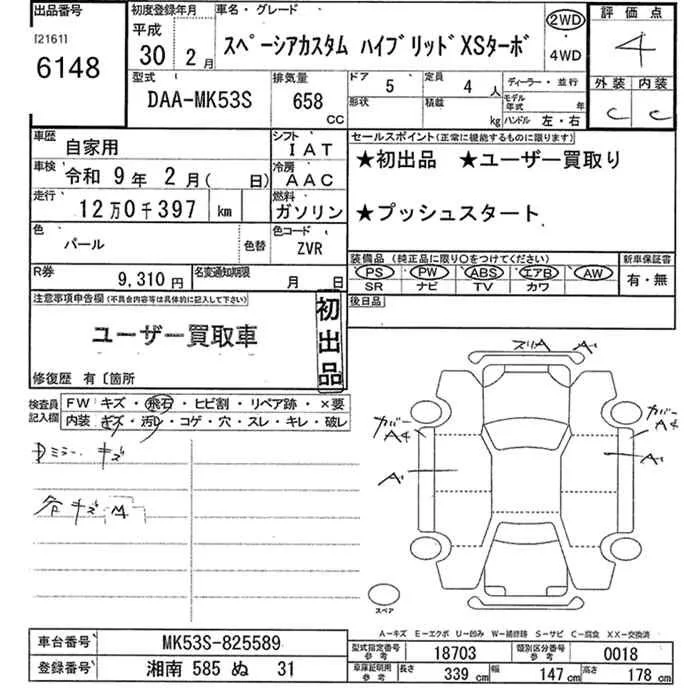 出品番号 初度登録年月 車名・グレード 評価点
[2161] 平成
6148 30 2月 スペーシアカスタム ハイブリッドXSターボ 2WD・4WD 4
型式 排気量 ドア 定員 ディーラー・並行 外装 内装
DAA-MK53S 658 CC 5 4人 モデル年式 年 C C
形状 積載 kg ハンドル 左・右
車歴 自家用 シフト IAT セールスポイント(正常に機能するものに限ります)
車検 令和 9年 2月( 日) 冷房 AAC ★初出品 ★ユーザー買取り
走行 12万0千397 km 燃料 ガソリン ★プッシュスタート
色 パール 色替 色コード ZVR
装備品(純正品に限り○をつけてください) 新車保証書
PS PW ABS エアB AW 有・無
SR ナビ TV カワ
R券 9,310円 名変通知期限 月 日 後日品
注意事項申告欄(不具合内容等は具体的に記入して下さい)
ユーザー買取車 初出品
修復歴 有〔箇所
検査員記入欄 FW キズ・飛石・ヒビ割・リペア跡・×要
内装 キズ・汚レ・コゲ・穴・スレ・キレ・破レ
Dミラー キズ
各キズ
スリA A'
カバー A4
カバー A4
A' A'
スペア
A-キズ E-エクボ U-凹み W-補修跡 S-サビ C-腐食 XX-交換済
車台番号 MK53S-825589 型式指定番号 参考 18703 類別区分番号 参考 0018
登録番号 湘南 585 ぬ 31 車庫証明用 参考 長さ 339 cm 幅 147 cm 高さ 178 cm